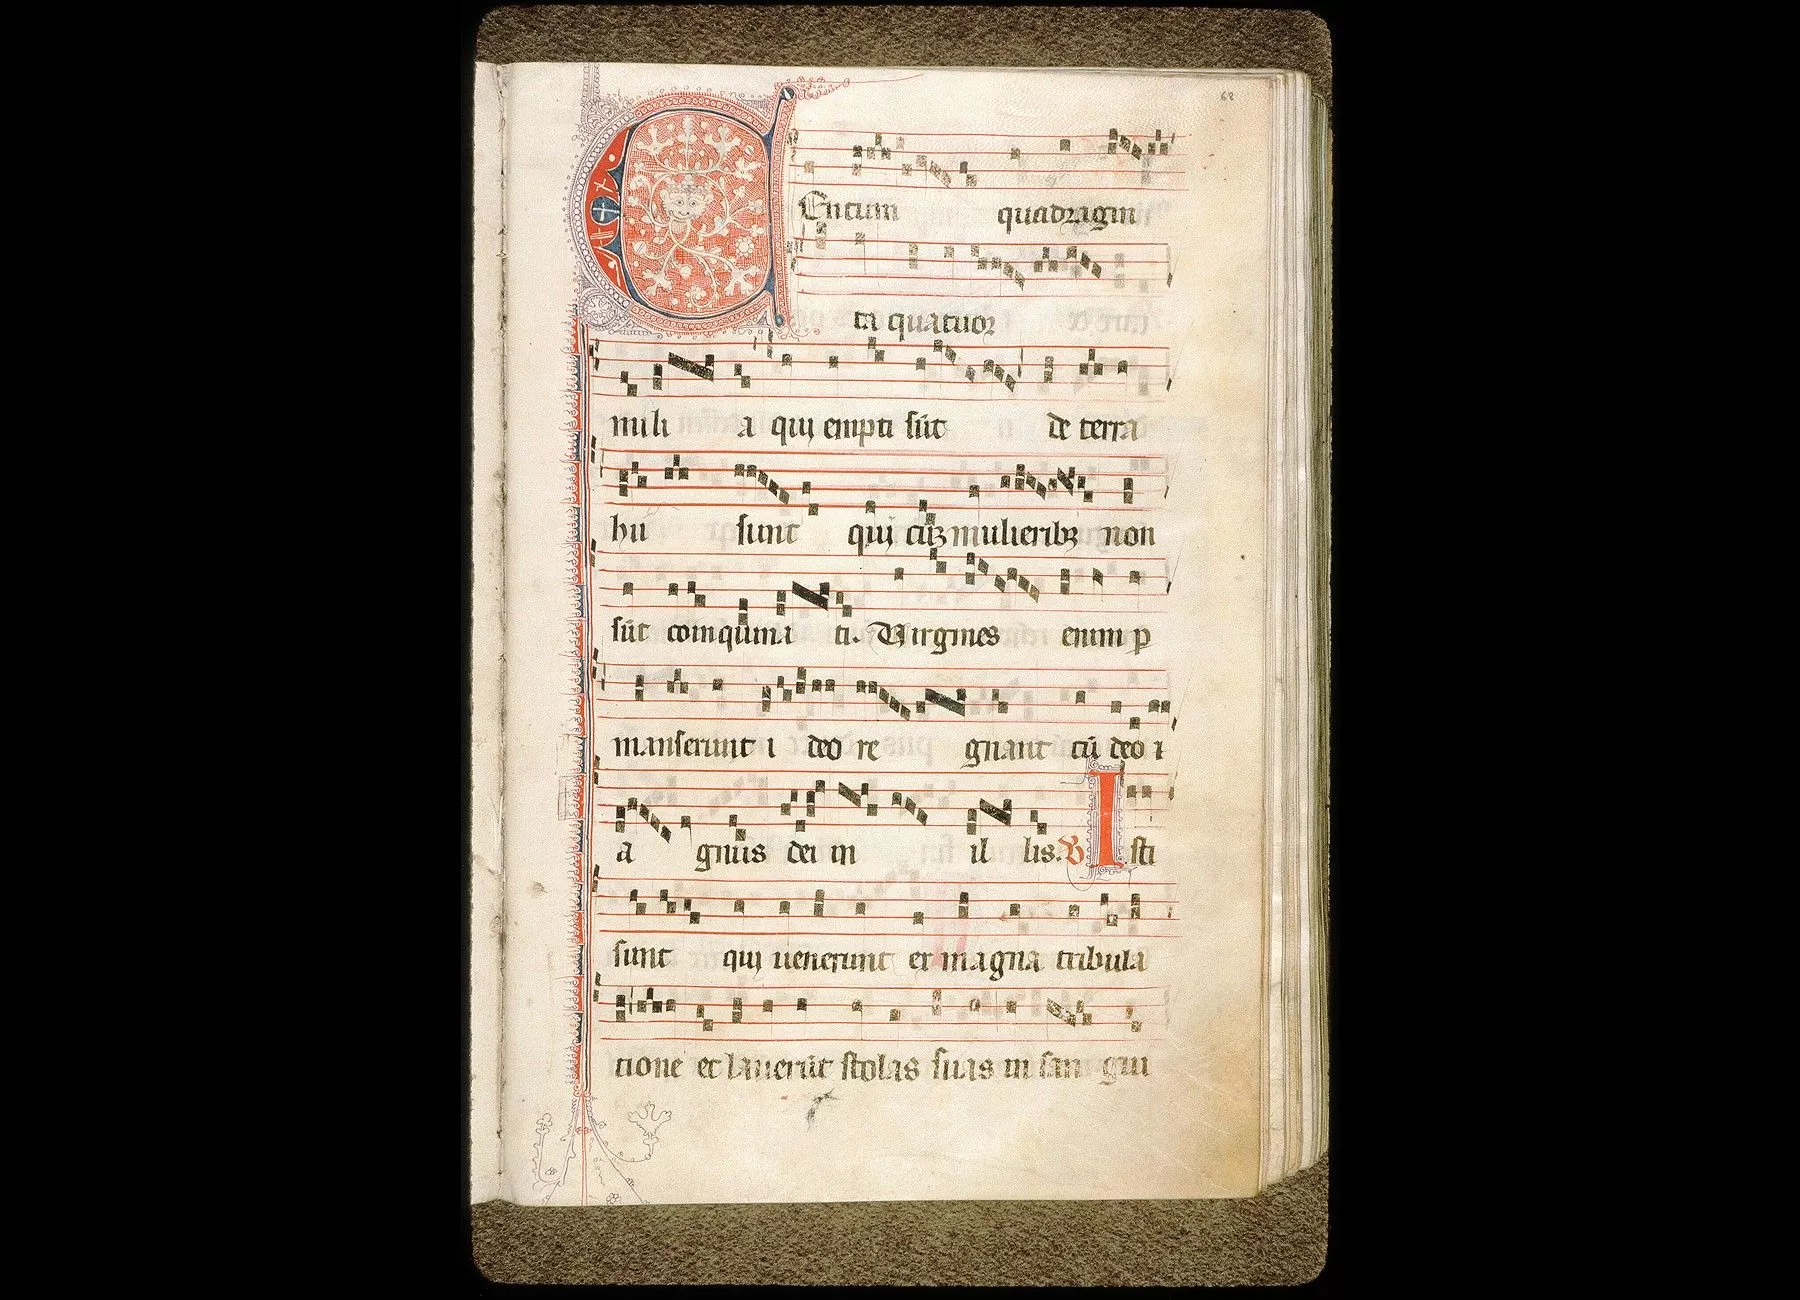 68
Centum quadragin
ta quatuor
mili a qui empti sūt de terra
hii sunt qui cūꝫ mulieribꝫ non
sūt coinquina ti. Virgines enim ꝑ
manserunt i deo re gnant cū deo ⁊
a gnus dei in il lis. ℣ Isti
sunt qui uenerunt ex magna tribula
tione et lauerūt stolas suas in san gui